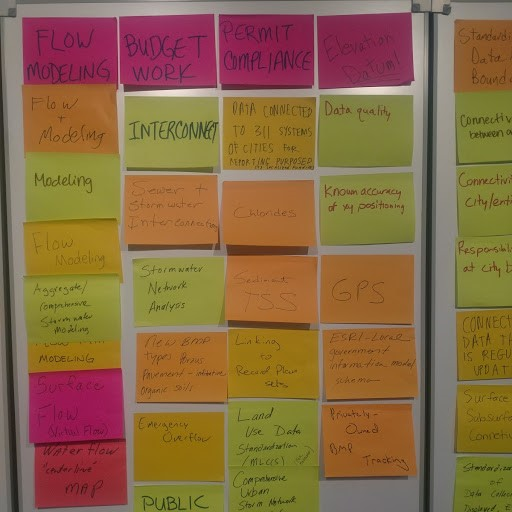 FLOW
MODELING
Flow
+
Modeling
Modeling
Flow
Modeling
Aggregate/
comprehensive
Stormwater
Modeling
MODELING
Surface
Flow
(Virtual Flow)
Water flow
"center lines"
MAP
BUDGET
WORK
INTERCONNECT
Sewer +
Storm water
Interconnectivity
Stormwater
Network
Analysis
View BMP
Types
Pavement -
organic soils
Emergency
Overflow
PUBLIC
PERMIT
COMPLIANCE
DATA CONNECTED
TO 311 SYSTEMS
OF CITIES FOR
REPORTING PURPOSES
Chlorides
Sediment
TSS
Linking
to
Record Plan
sets
Land
Use Data
Standardization
(MLCCS)
Comprehensive
Urban
Storm Network
Elevation
Datum
Data quality
Known accuracy
of xy positioning
GPS
ESRI - Local
government
information model
schema
Privately-
Owned
BMP
Tracking
Standardiz
Data
Bound
Connectiv
between
Connectivi
city/enti
Responsible
at city
CONNECT
DATA
IS REGU
UPDAT
Surface
Subsurf
Connectio
Standardiza
of
Data Collec